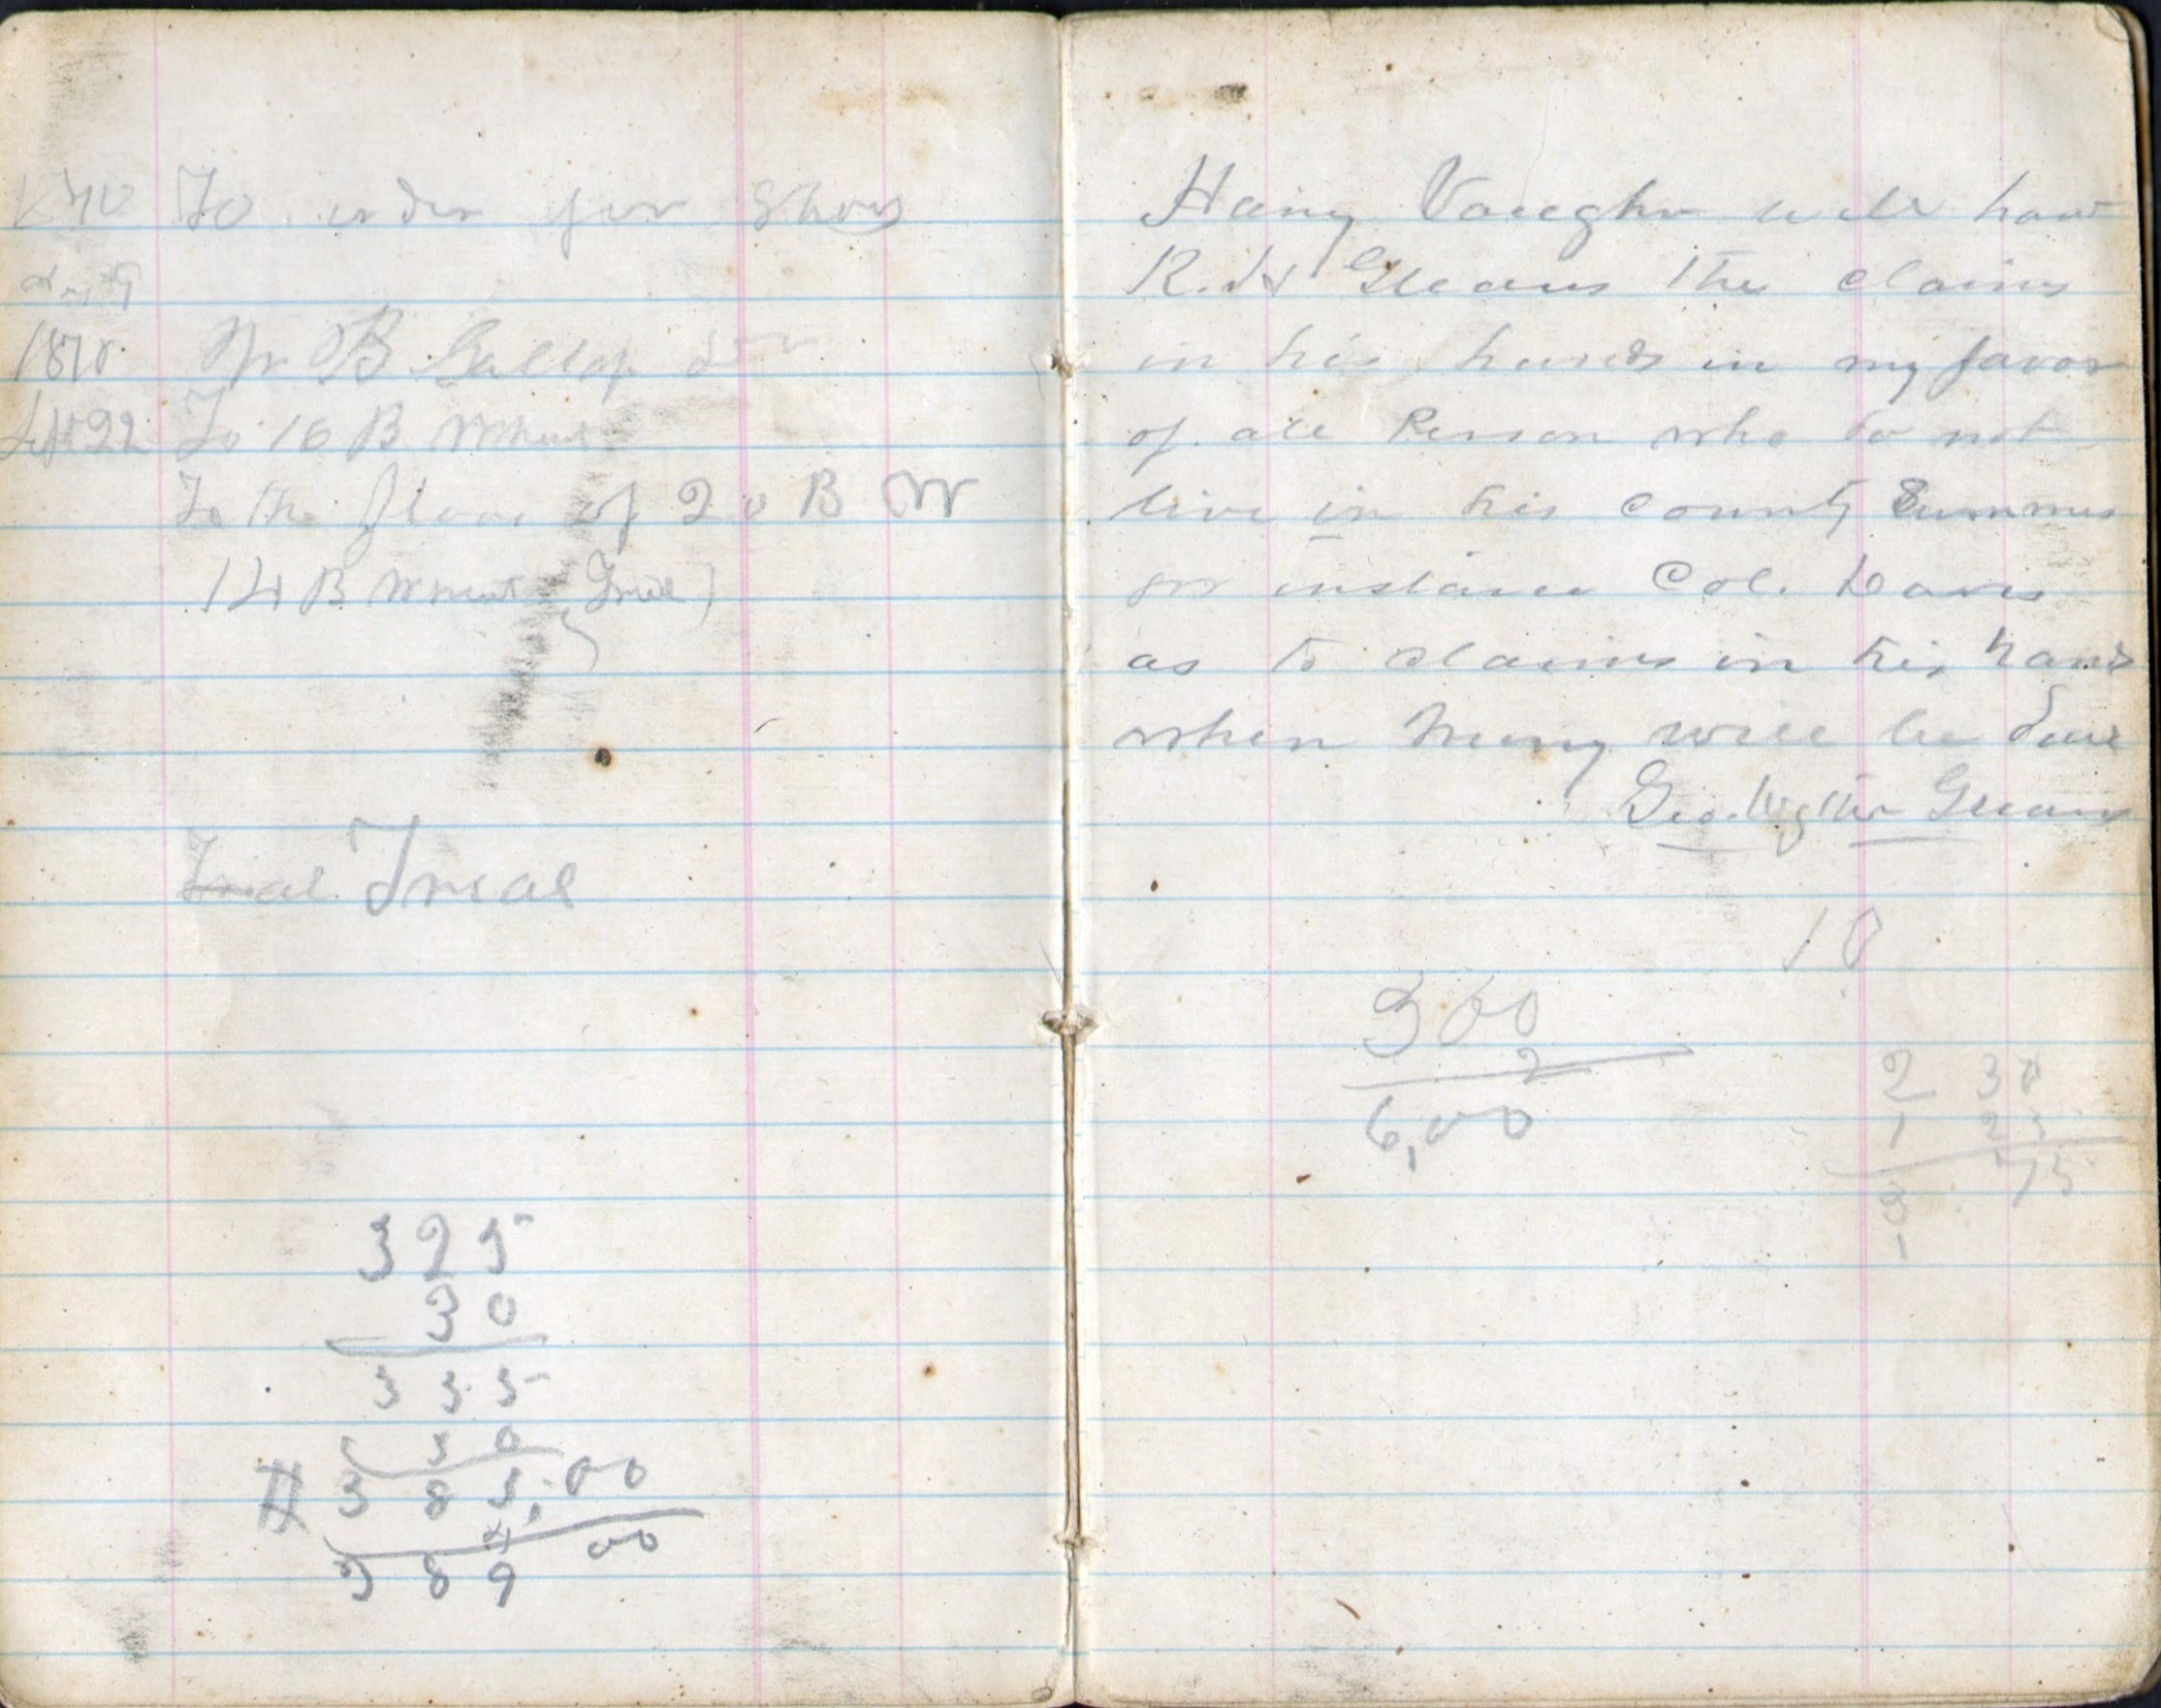 To order for Shoes
1870 B Gallop
Sept 22 To 16 B Wheat
To the floor of 20 B W
14 B Wheat
Trial Trial
325
30
355
30
385,00
4 00
389
Harry Vaughn will have
R. the claims
in his hands in my favor
of all Person who do not
live in his county Summer
for instance Col. Davis
as to claims in his hands
when money will be due
Geo.
10
300
2
6,00
2 30
1 25
3 75
1